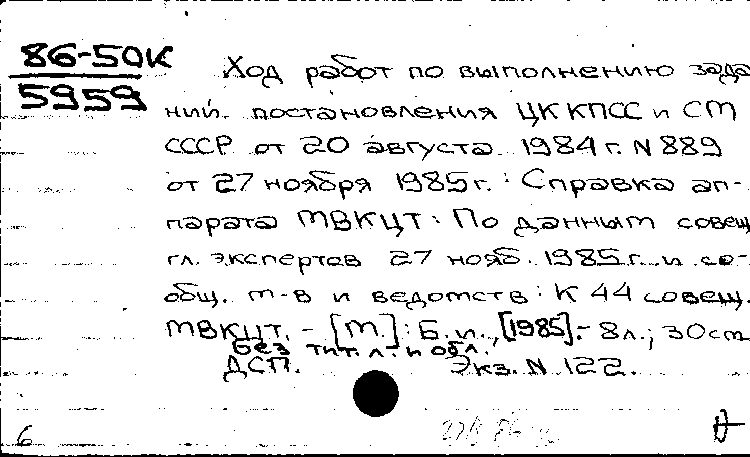 86-50К
5959
Ход работ по выполнению зада
ний постановления ЦК КПСС и СМ
СССР от 20 августа 1984 г. N 889
от 27 ноября 1985 г. : Справка ап-
парата МВКЦТ : По данным совещ
гл. экспертов 27 нояб. 1985 г. и со-
общ. м-в и ведомств : К 44 совещ.
МВКЦТ. - [М.] : Б. и., [1985]. - 8 л.; 30 см
Без тит. л. и обл.
ДСП. Экз. N 122.
6